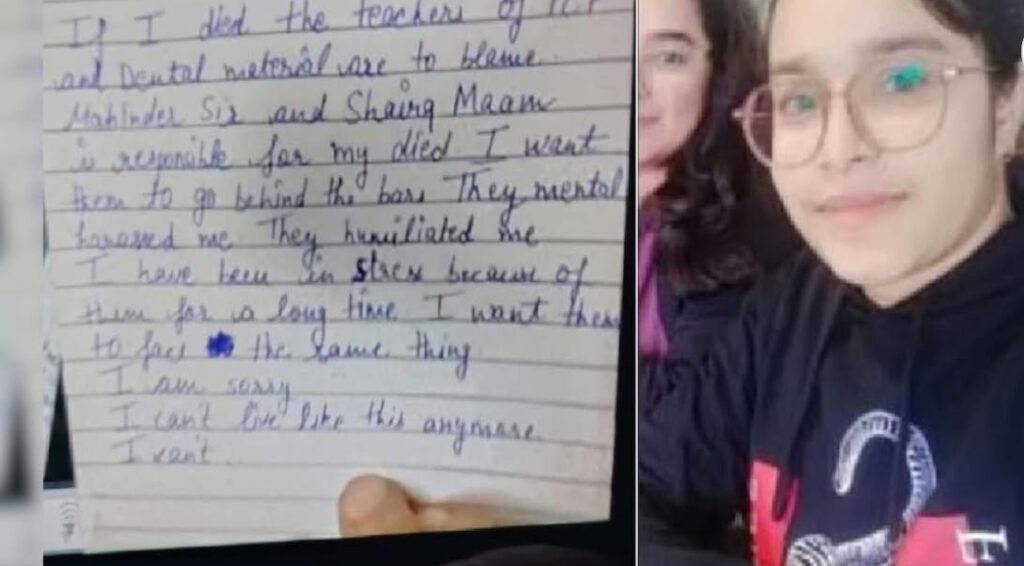 If I died the teachers of
and Dental material are to blame.
Mahinder Sir and Shairg Maam
is responible for my died I want
them to go behind the bars They mental
harassed me They humiliated me
I have been in stress because of
them for a long time I want them
to face the same thing
I am sorry
I can't live like this anymore
I can't
E